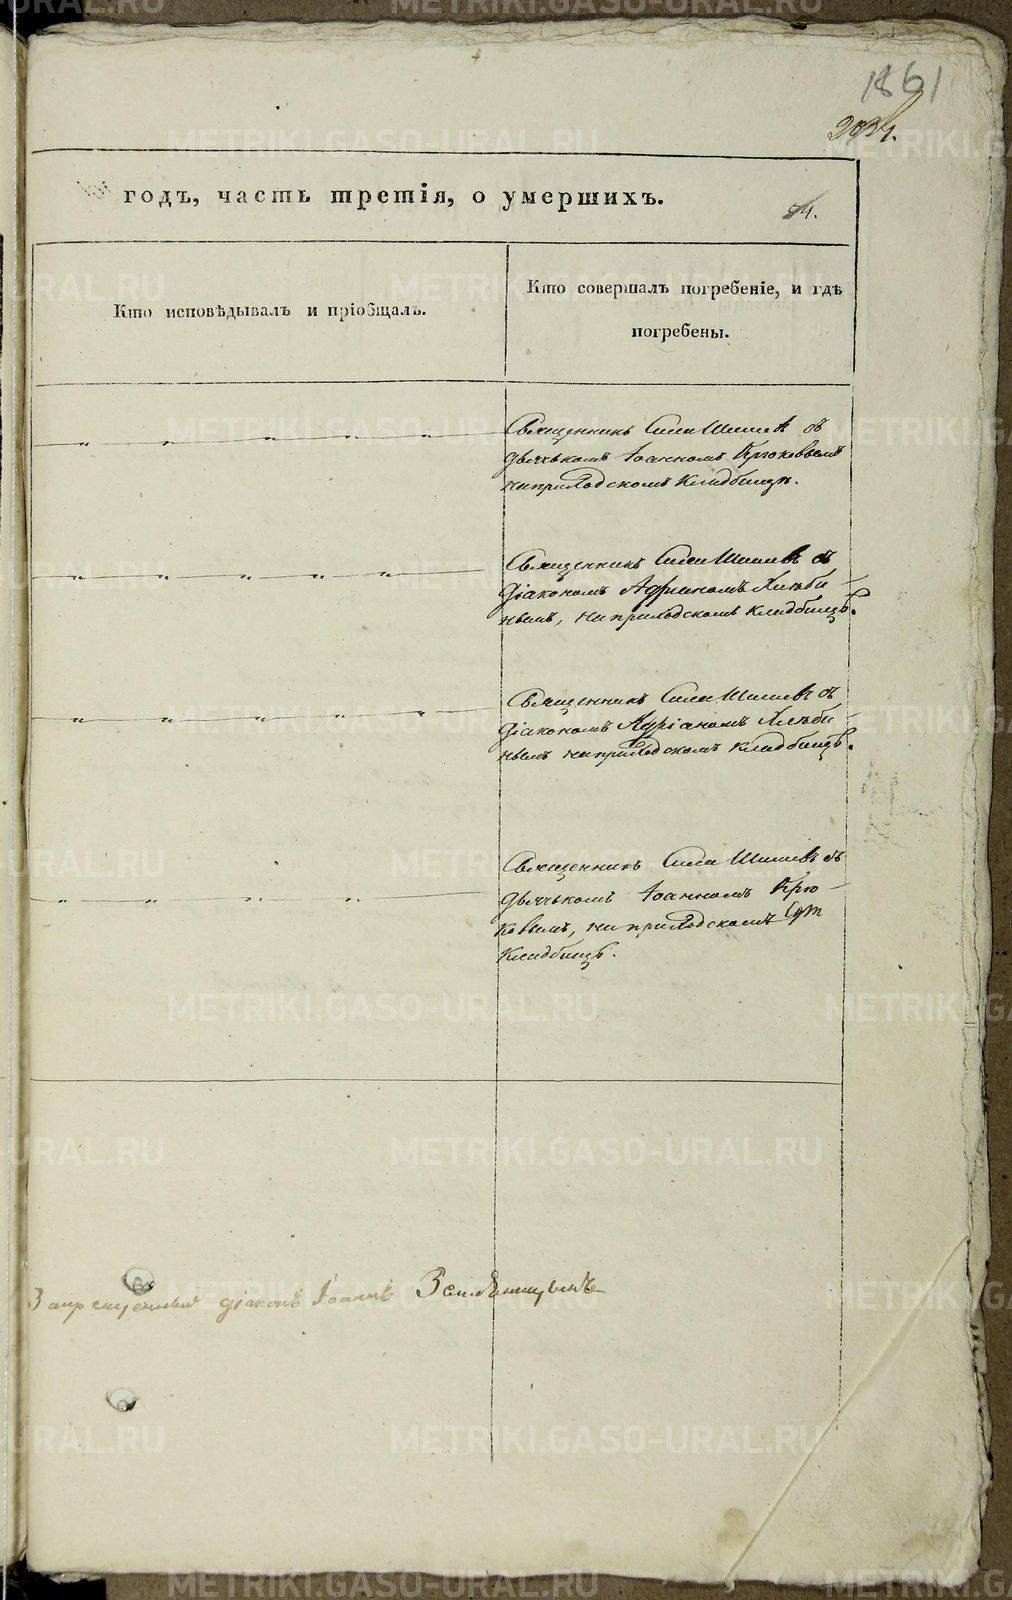 1861
годъ, часть третія, о умершихъ.
Кто исповѣдывалъ и пріобщалъ.
Кто совершалъ погребеніе, и гдѣ
погребены.
Священникъ Сила Шишевъ съ
дьячькомъ Іоанномъ Крюковымъ
на приходскомъ кладбищѣ.
Священникъ Сила Шишевъ съ
діакономъ Адріаномъ Хлѣби-
нымъ, на приходскомъ кладбищѣ.
Священникъ Сила Шишевъ съ
діакономъ Адріаномъ Хлѣби-
нымъ на приходскомъ кладбищѣ.
Священникъ Сила Шишевъ съ
дьячькомъ Іоанномъ Крю-
ковымъ, на приходскомъ
кладбищѣ.
діаконъ Іоаннъ
METRIKI.GASO-URAL.RU